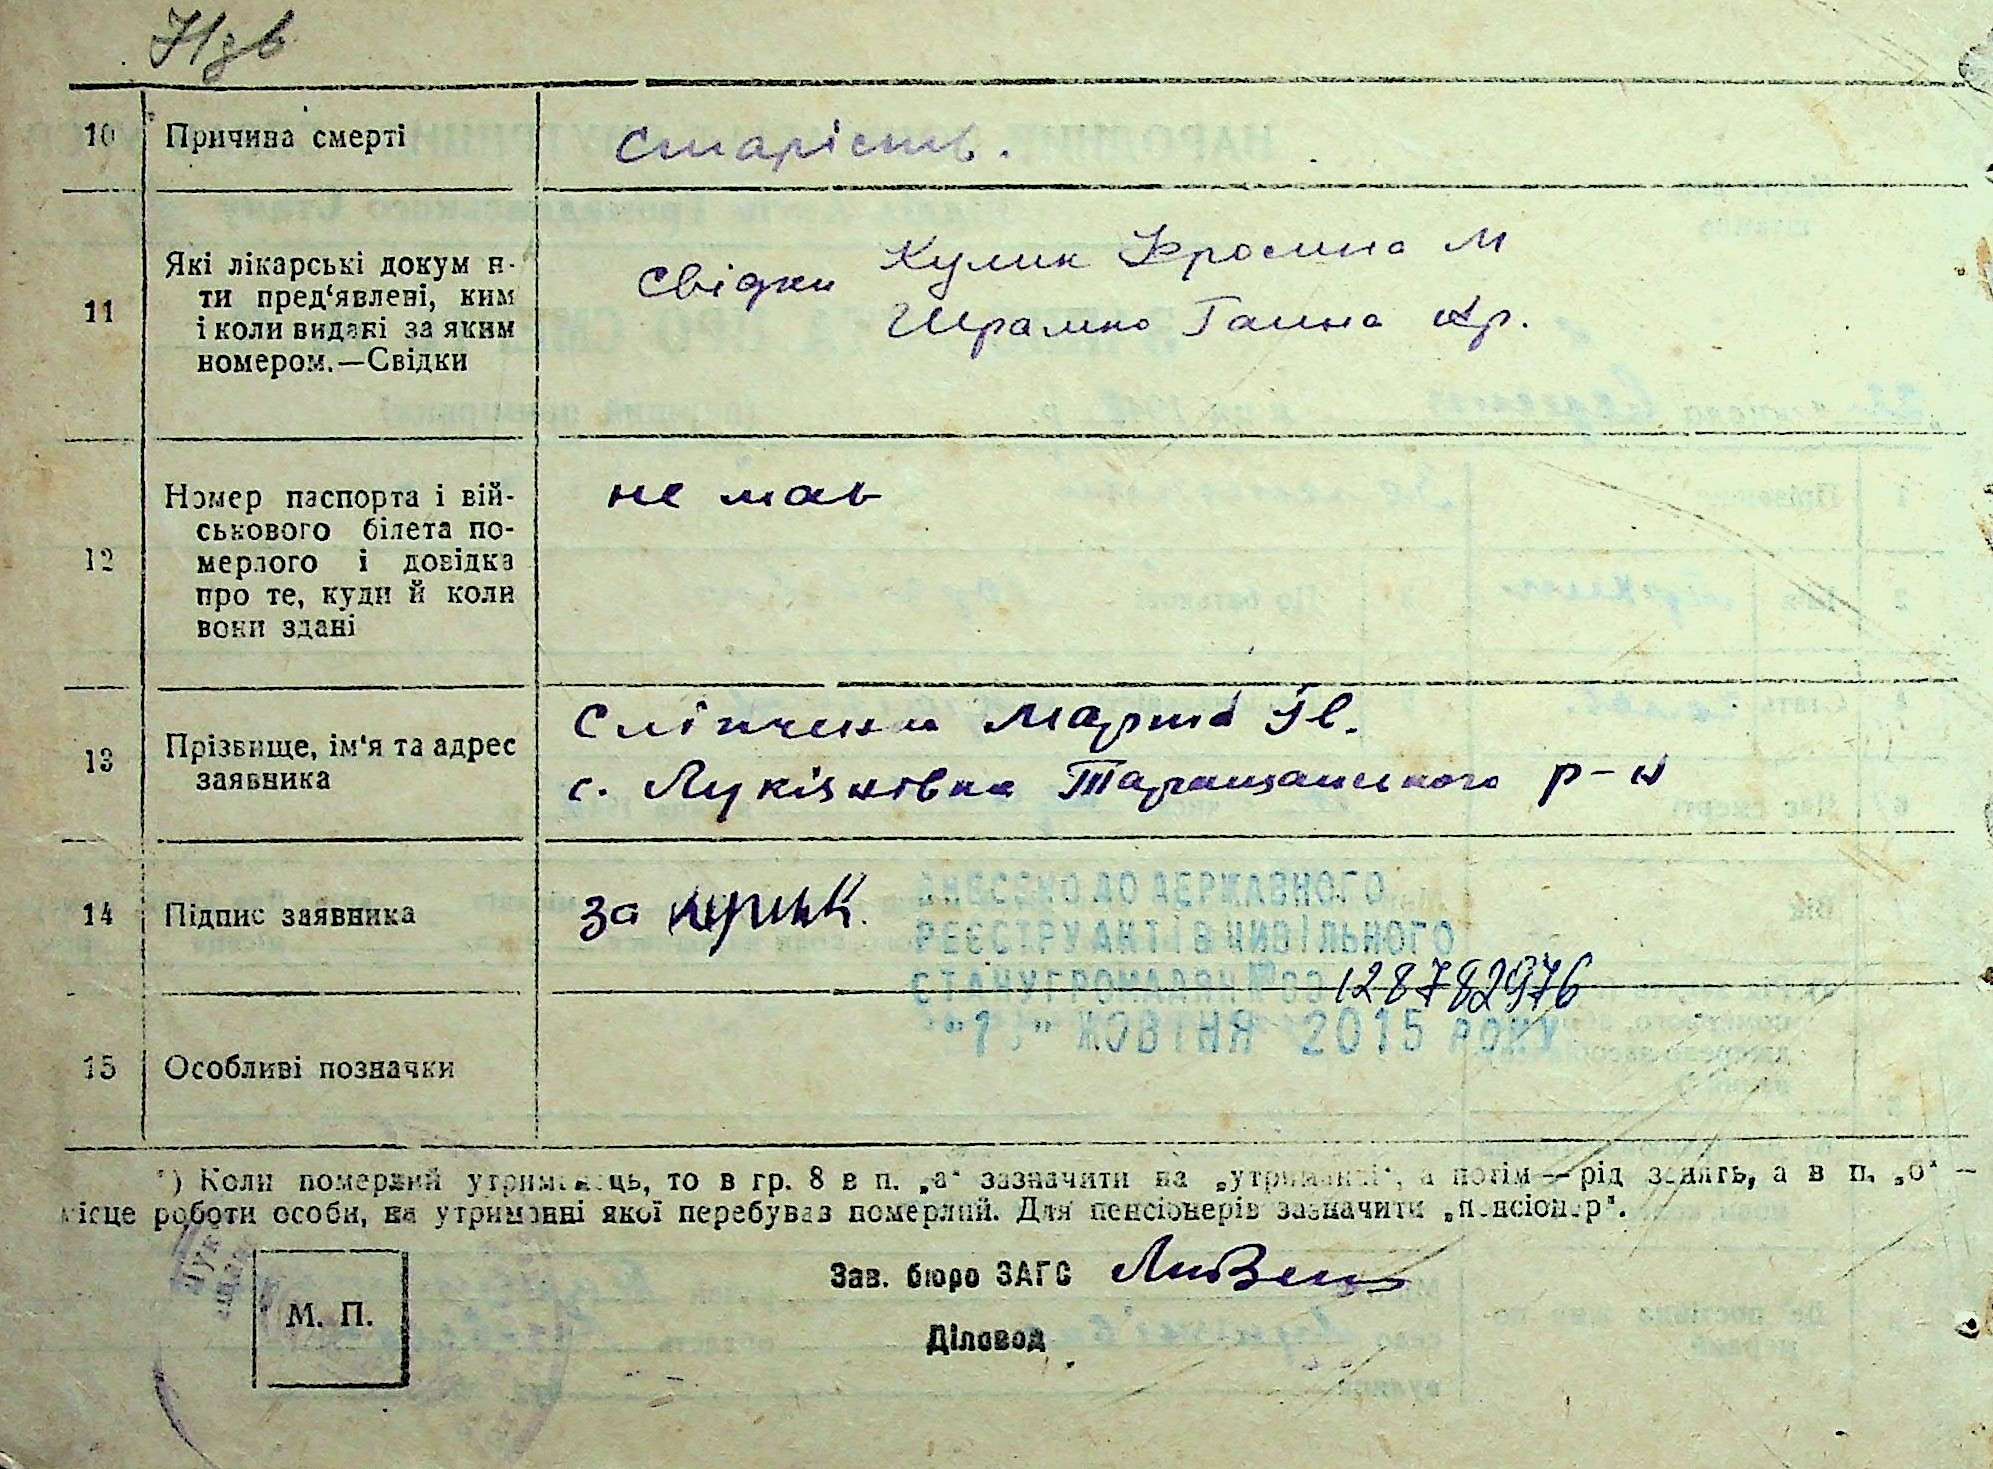 10 Причина смерті старість.
11 Які лікарські докум н-
ти пред'явлені, ким
і коли видані за яким
номером.—Свідки
свідки Кулик Фросина М
Шрамко Ганна
12 Номер паспорта і вій-
ськового білета по-
мерлого і довідка
про те, куди й коли
вони здані
не мав
13 Прізвище, ім'я та адрес
заявника
Сліпченко Марта Ів.
с. Лукіянівка Таращанського р-н
14 Підпис заявника за
ВНЕСЕНО ДО ДЕРЖАВНОГО
РЕЄСТРУ АКТІВ ЦИВІЛЬНОГО
СТАНУ ГРОМАДЯН № 00128782976
"1" ЖОВТНЯ 2015 РОКУ
15 Особливі позначки
*) Коли померлий утриманець, то в гр. 8 в п. „а" зазначити на „утриманні", а потім — рід занять, а в п. „б" —
місце роботи особи, на утриманні якої перебував померлий. Для пенсіонерів зазначити „пенсіонер".
Зав. бюро ЗАГС
М. П.
Діловод